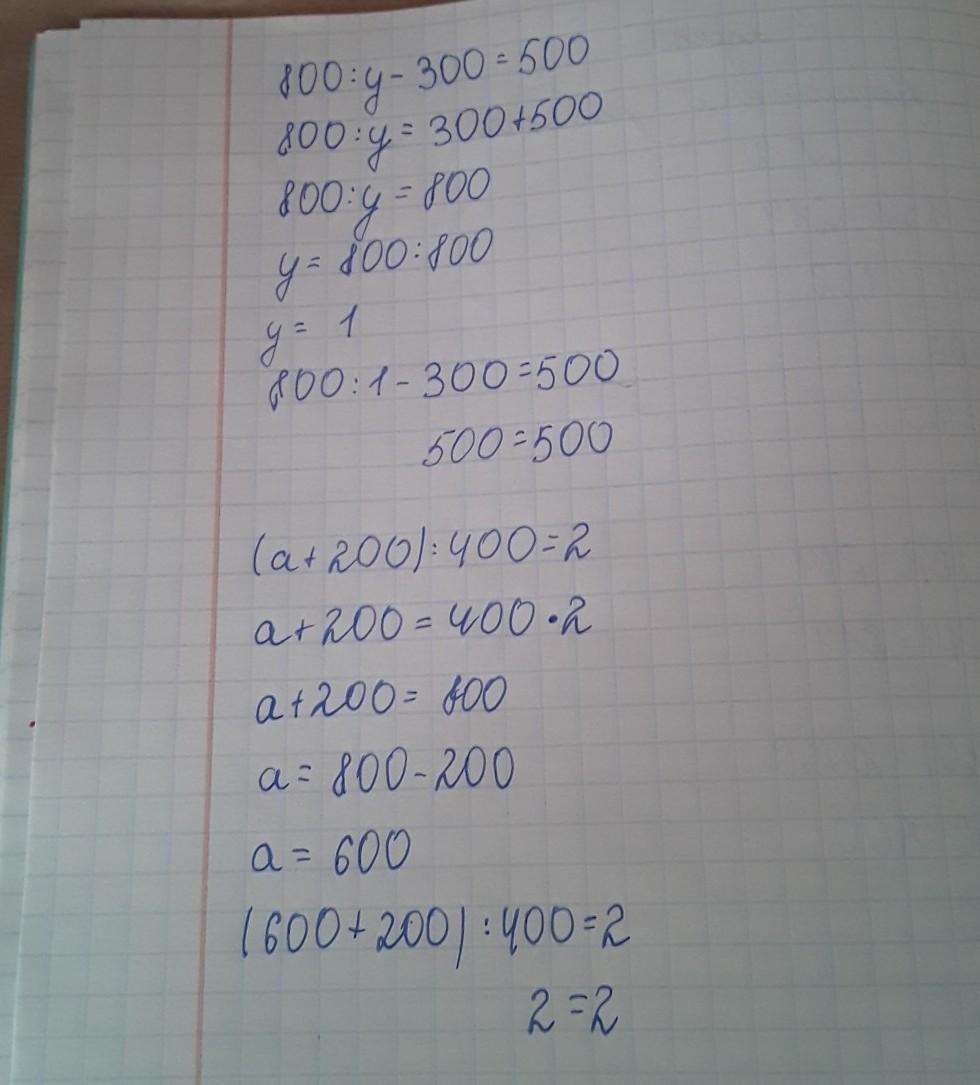 800:y-300=500
800:y=300+500
800:y=800
y=800:800
y=1
800:1-300=500
500=500
(a+200):400=2
a+200=400·2
a+200=800
a=800-200
a=600
(600+200):400=2
2=2